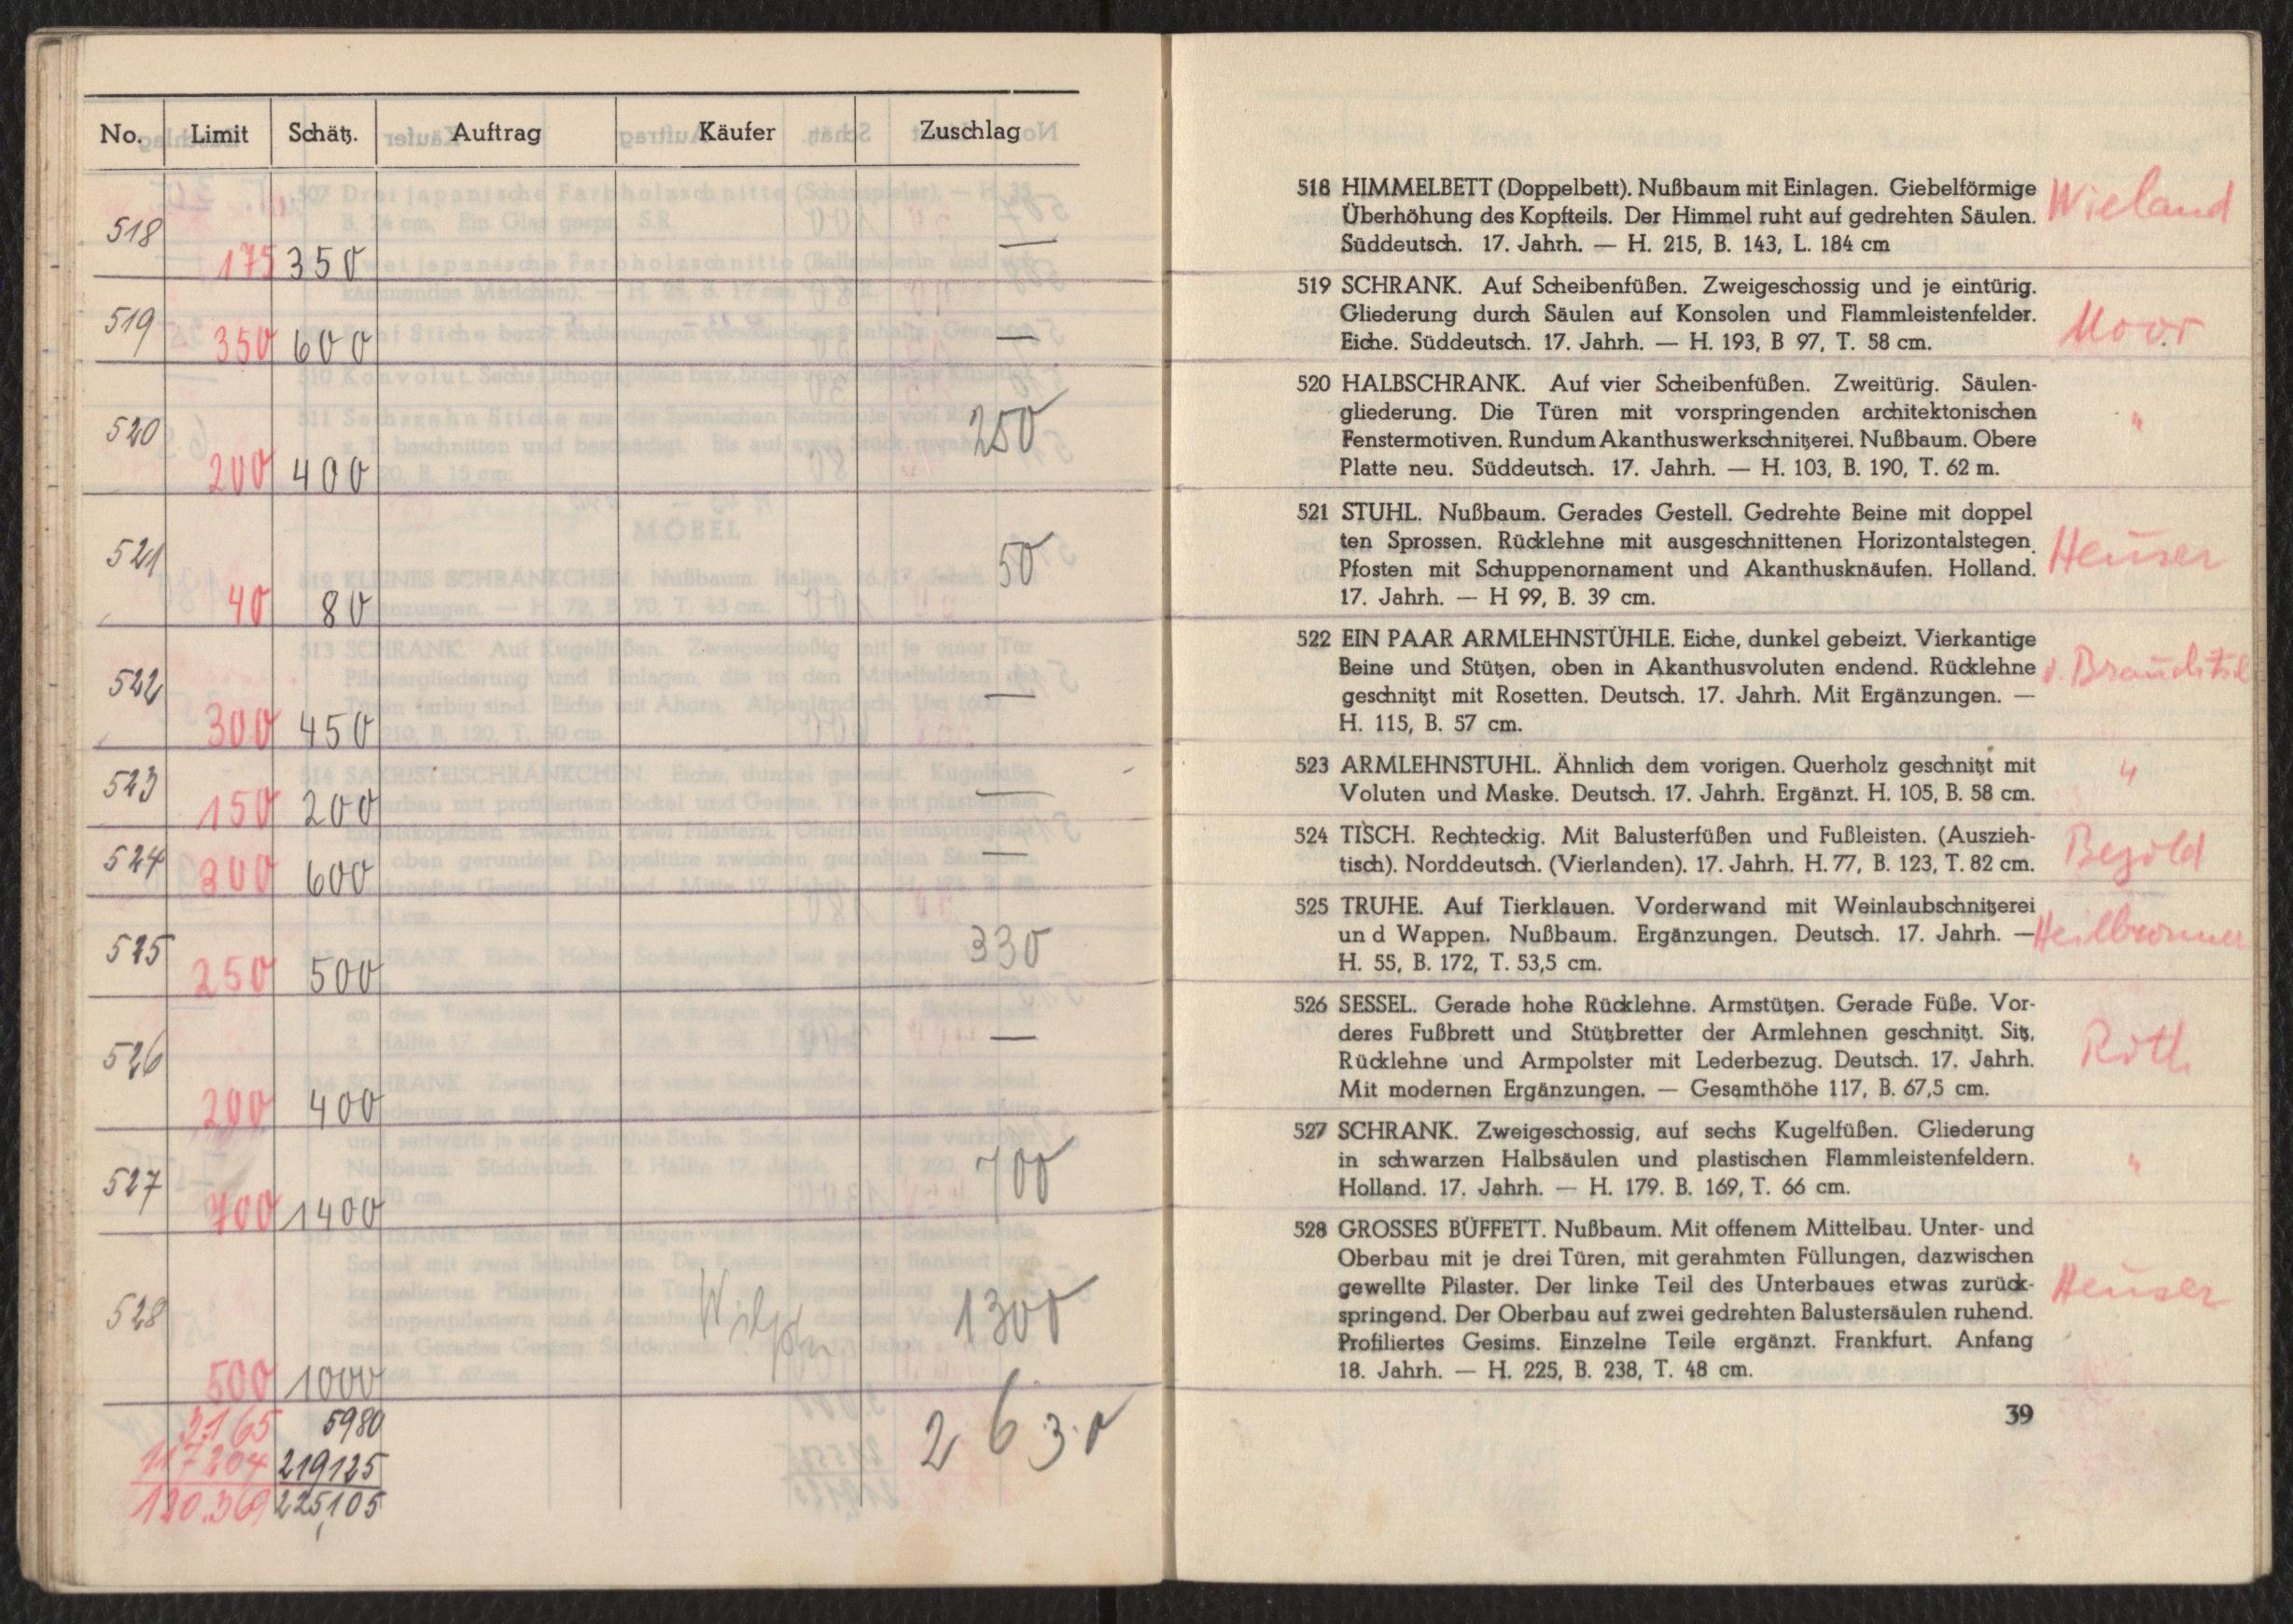 No. Limit Schätz. Auftrag Käufer Zuschlag
518 175 350 —
519 350 600 —
520 200 400 250
521 40 80 50
522 300 450 —
523 150 200 —
524 300 600 —
525 250 500 330
526 200 400 —
527 700 1400 700
528 500 1000 1300
3165 5980 2630
117204 219125
120.369 225,105
518 HIMMELBETT (Doppelbett). Nußbaum mit Einlagen. Giebelförmige
Überhöhung des Kopfteils. Der Himmel ruht auf gedrehten Säulen.
Süddeutsch. 17. Jahrh. — H. 215, B. 143, L. 184 cm
Wieland
519 SCHRANK. Auf Scheibenfüßen. Zweigeschossig und je eintürig.
Gliederung durch Säulen auf Konsolen und Flammleistenfelder.
Eiche. Süddeutsch. 17. Jahrh. — H. 193, B 97, T. 58 cm.
Moor
520 HALBSCHRANK. Auf vier Scheibenfüßen. Zweitürig. Säulen-
gliederung. Die Türen mit vorspringenden architektonischen
Fenstermotiven. Rundum Akanthuswerkschnitzerei. Nußbaum. Obere
Platte neu. Süddeutsch. 17. Jahrh. — H. 103, B. 190, T. 62 m.
"
521 STUHL. Nußbaum. Gerades Gestell. Gedrehte Beine mit doppel
ten Sprossen. Rücklehne mit ausgeschnittenen Horizontalstegen.
Pfosten mit Schuppenornament und Akanthusknäufen. Holland.
17. Jahrh. — H 99, B. 39 cm.
Heuser
522 EIN PAAR ARMLEHNSTÜHLE. Eiche, dunkel gebeizt. Vierkantige
Beine und Stützen, oben in Akanthusvoluten endend. Rücklehne
geschnitzt mit Rosetten. Deutsch. 17. Jahrh. Mit Ergänzungen. —
H. 115, B. 57 cm.
523 ARMLEHNSTUHL. Ähnlich dem vorigen. Querholz geschnitzt mit
Voluten und Maske. Deutsch. 17. Jahrh. Ergänzt. H. 105, B. 58 cm.
"
524 TISCH. Rechteckig. Mit Balusterfüßen und Fußleisten. (Auszieh-
tisch). Norddeutsch. (Vierlanden). 17. Jahrh. H. 77, B. 123, T. 82 cm.
525 TRUHE. Auf Tierklauen. Vorderwand mit Weinlaubschnitzerei
un d Wappen. Nußbaum. Ergänzungen. Deutsch. 17. Jahrh. —
H. 55, B. 172, T. 53,5 cm.
Heilbronner
526 SESSEL. Gerade hohe Rücklehne. Armstützen. Gerade Füße. Vor-
deres Fußbrett und Stützbretter der Armlehnen geschnitzt. Sitz,
Rücklehne und Armpolster mit Lederbezug. Deutsch. 17. Jahrh.
Mit modernen Ergänzungen. — Gesamthöhe 117, B. 67,5 cm.
Roth
527 SCHRANK. Zweigeschossig, auf sechs Kugelfüßen. Gliederung
in schwarzen Halbsäulen und plastischen Flammleistenfeldern.
Holland. 17. Jahrh. — H. 179. B. 169, T. 66 cm.
"
528 GROSSES BÜFFETT. Nußbaum. Mit offenem Mittelbau. Unter- und
Oberbau mit je drei Türen, mit gerahmten Füllungen, dazwischen
gewellte Pilaster. Der linke Teil des Unterbaues etwas zurück-
springend. Der Oberbau auf zwei gedrehten Balustersäulen ruhend.
Profiliertes Gesims. Einzelne Teile ergänzt. Frankfurt. Anfang
18. Jahrh. — H. 225, B. 238, T. 48 cm.
Heuser
39